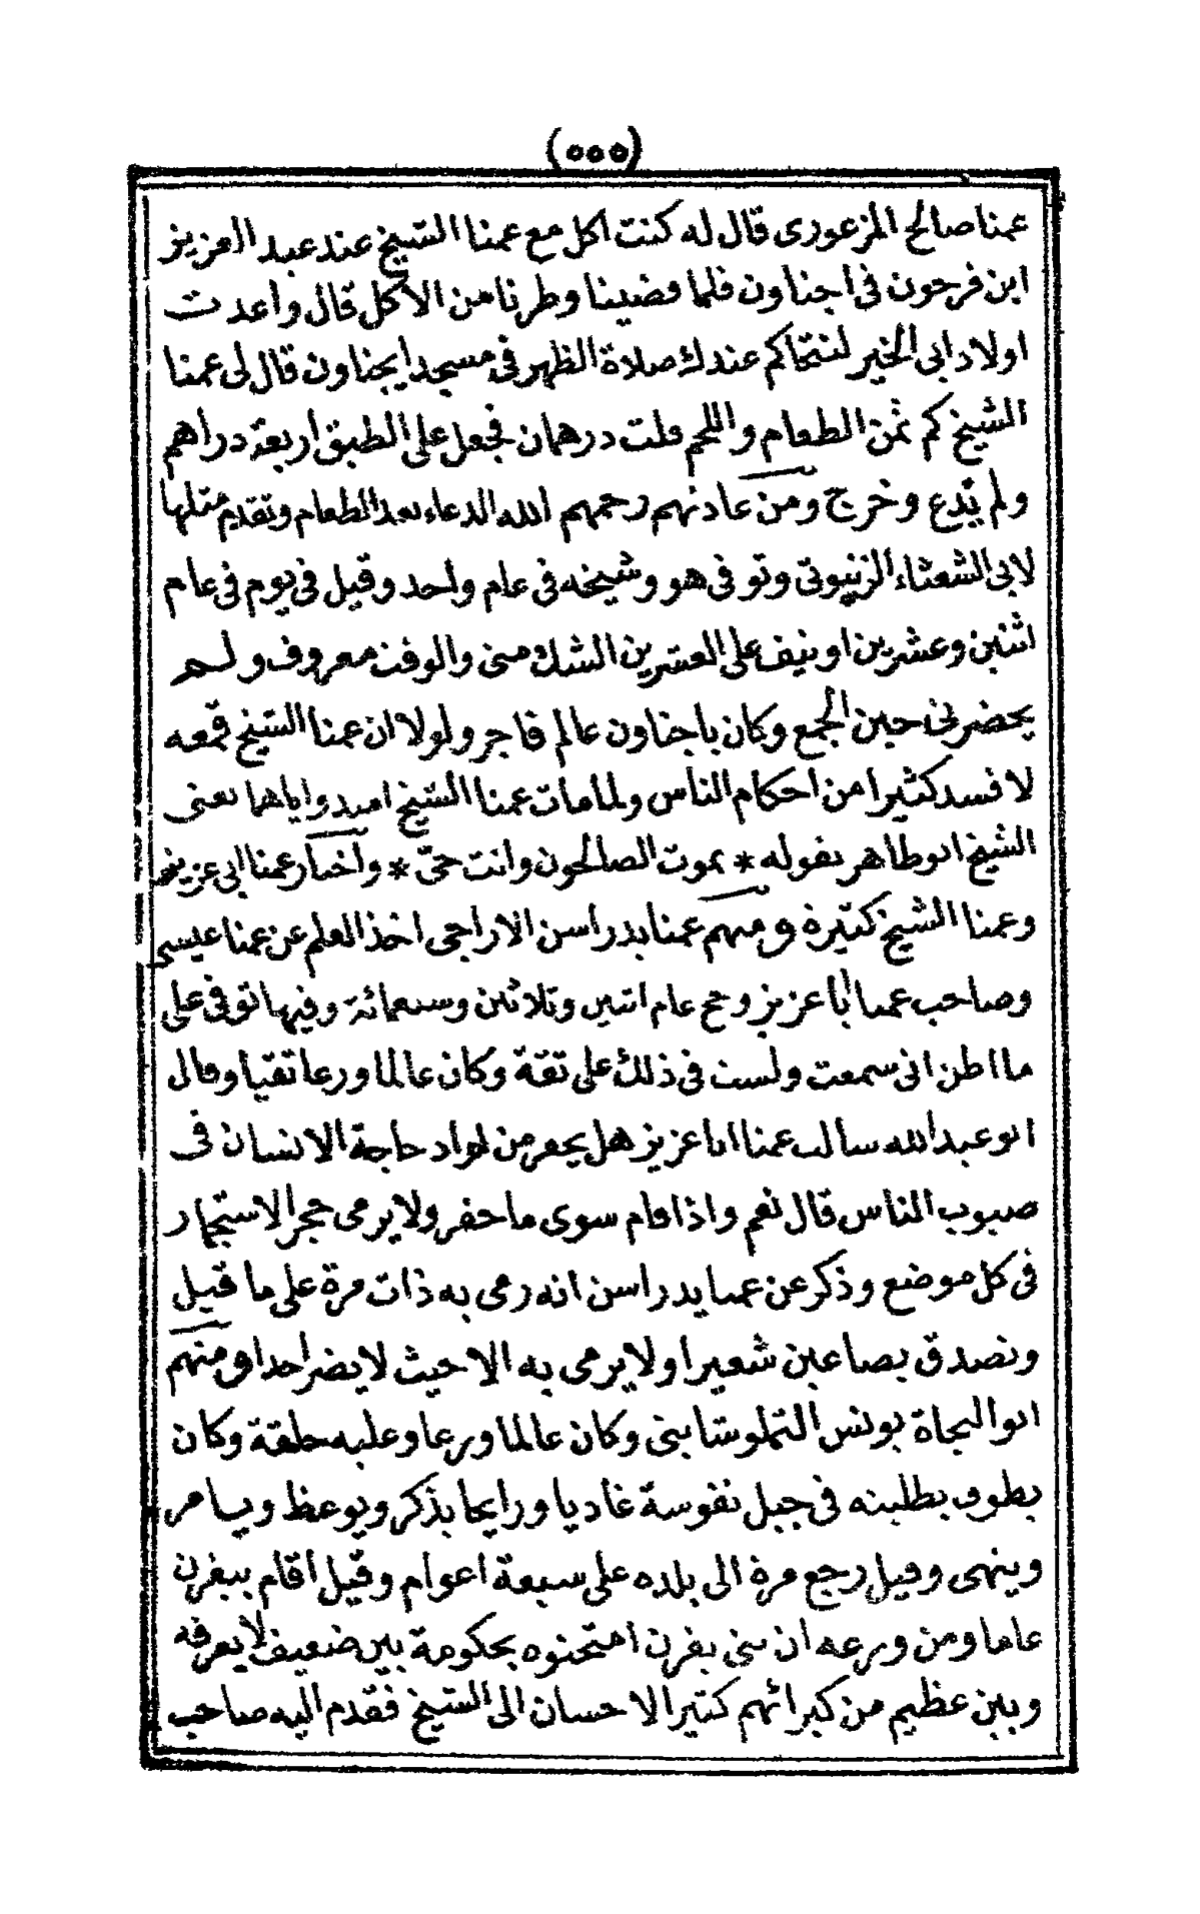 (٥٥٥)
عمنا صالح المزعورى قال له كنت اكل مع عمنا الشيخ عند عبد العزيز
ابن فرحون فى اجناون فلما قضينا وطرنا من الاكل قال واعدت
اولاد ابى الخير لنتحاكم عندك صلاة الظهر فى مسجد ايجناون قال لى عمنا
الشيخ كم ثمن الطعام واللحم قلت درهمان فجعل على الطبق اربعة دراهم
ولم يدع وخرج ومن عادتهم رحمهم الله الدعاء بعد الطعام وتقدم مثلها
لابى الشعثاء الزنبوتى وتوفى هو وشيخه فى عام واحد وقيل فى يوم فى عام
اثنين وعشرين او نيف على العشرين الشك منى والوقت معروف ولم
يحضرنى حين الجمع وكان باجناون عالم فاجر ولولا ان عمنا الشيخ قمعه
لافسد كثيرا من احكام الناس ولما مات عمنا الشيخ اميد واياهما يعنى
الشيخ ابو طاهر بقوله * يموت الصالحون وانت حىّ * واخبار عمنا ابى عزيز
وعمنا الشيخ كثيرة ومنهم عمنا يدراسن الاراجى اخذ العلم عن عمنا عيسى
وصاحب عمنا ابا عزيز وحج عام اثنين وثلاثين وسبعمائة وفيها توفى على
ما اظن انى سمعت ولست فى ذلك على ثقة وكان عالما ورعا تقيا وقال
ابو عبد الله سالت عمنا ابا عزيز هل يحفر من اراد حاجة الانسان فى
صبوب الناس قال نعم واذا قام سوى ما حفر ولا يرمى حجر الاستجمار
فى كل موضع وذكر عن عمنا يدراسن انه رمى به ذات مرة على ما قيل
وتصدق بصاعين شعيرا ولا يرمى به الا حيث لا يضر احدا ومنهم
ابو النجاة يونس التملوشايتى وكان عالما ورعا وعليه حلقة وكان
يطوف بطلبته فى جبل نفوسة غاديا ورايحا يذكر ويوعظ ويامر
وينهى وقيل رجع مرة الى بلده على سبعة اعوام وقيل اقام بيفرن
عاما ومن ورعه ان بنى يفرن امتحنوه بحكومة بين ضعيف لا يعرفه
وبين عظيم من كبرائهم كثير الاحسان الى الشيخ فقدم اليه صاحب